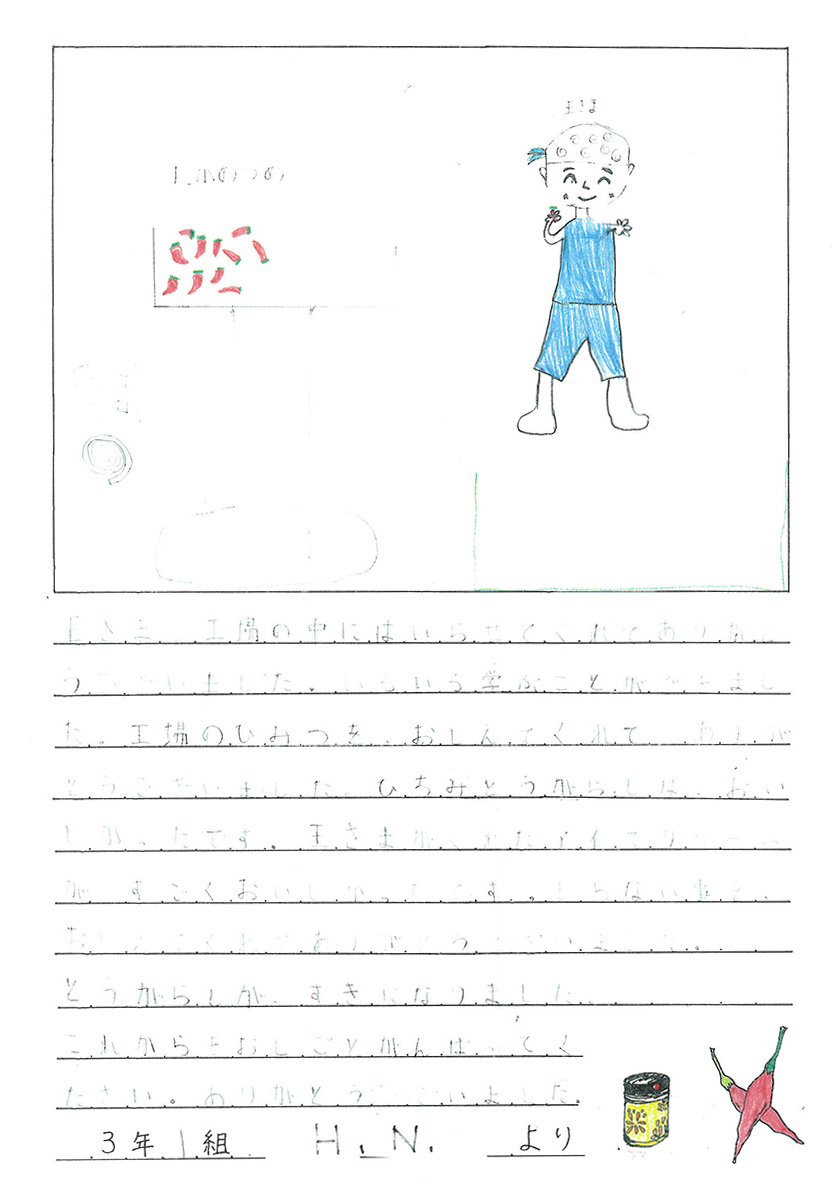 王さま
工場のひみつ
王さま、工場の中にはいらせてくれてありがと
うございました。いろいろ学ぶことができまし
た。工場のひみつを、おしえてくれて、ありが
とうございました。ひちみとうがらしは、おい
しかったです。王さまがくれたアイスクリーム
が、すごくおいしかったです。しらない事を、
おしえてくれてありがとうございました。
とうがらしが、すきになりました。
これからもおしごとがんばってく
ださい。ありがとうございました。
3年1組 H.N. より